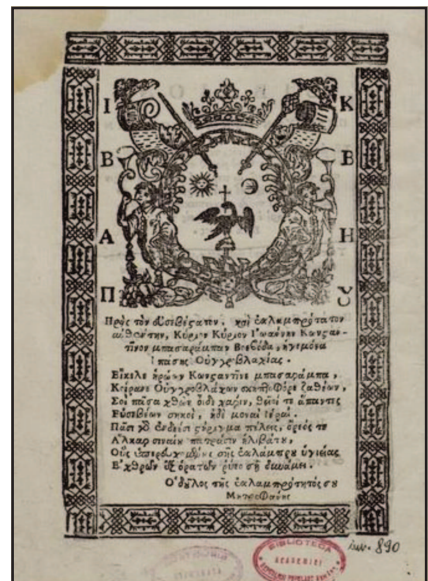 Ι Κ
Β Β
Α Η
Π Ȣ
Πρὸς τὸν εὐσεβέςατον, καὶ ἐκλαμπρότατον
αὐθέντην, Κύριον Κύριον Ἰωάννην Κωνςαν-
τῖνον μπασαράμπαν Βοεβόδα, ἡγεμόνα
πάσης Οὐγγροβλαχίας.
Εἴκελε ἡρώων Κωνςαντῖνε μπασαράμπα,
Κοίρανε Οὐγγροβλάχων σκηπτοφόρε ζαθέων,
Σοὶ πᾶσα χθὼν οἶδε χάριν, θεῖοί τε ἅπαντες
Εὐσεβέων σηκοὶ, ἠδὲ μοναὶ ἱεραί.
Πᾶσι γὸ ςήριγμα πέλεις, ὄρεός τε
Ἄλκαρ πατράσιν ἠλιβάτου,
Οὓς σῆς ἐκλάμπρου ὑγιείας
Ἐχθρῶν ἐξ ὁρατῶν ῥύεο σῇ δυνάμει.
Ὁ δοῦλος τῆς ἐκλαμπρότητός σου
Μητροφάνης
BIBLIOTECA
ACADEMIEI
inv. 890